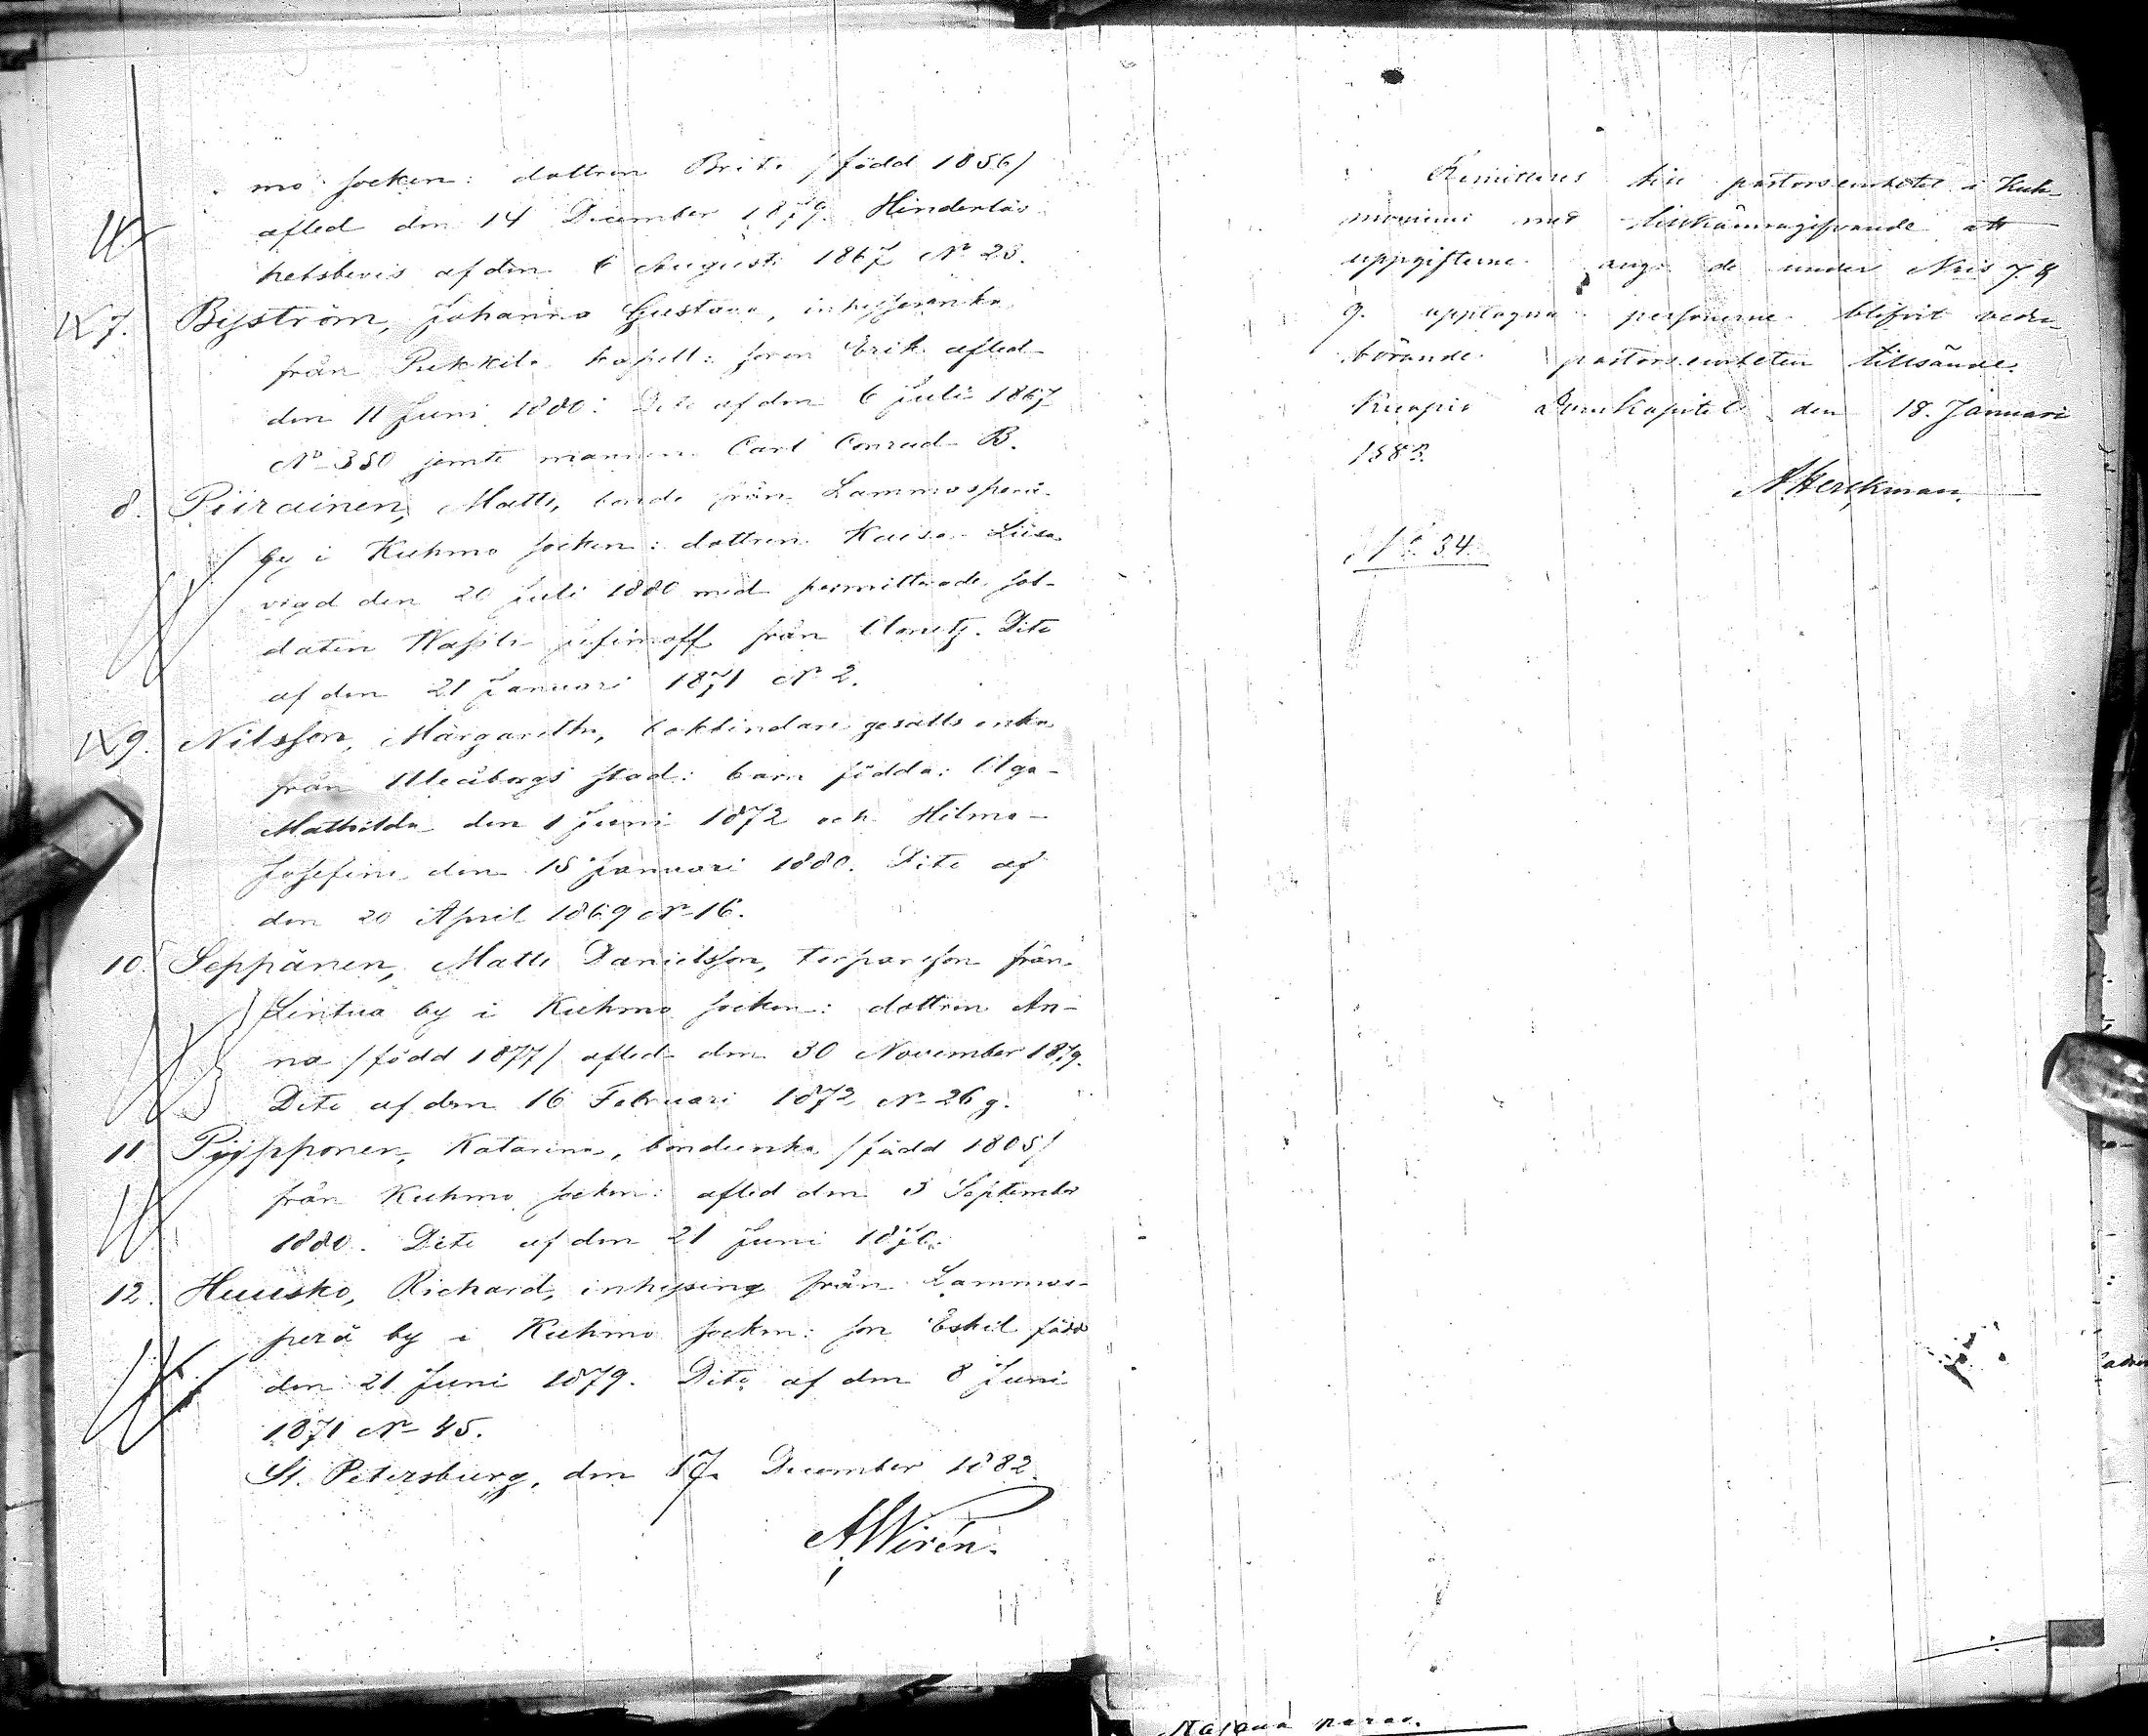 mo socken: dottren Brita /född 1856/
afled den 14 December 1879. Hinderlös-
hetsbevis af den 6 Augusti 1867 No 23.
7. Byström, Johanna Gustava, inhysesenka
från Pukkila kapell: sonen Erik afled
den 11 Juni 1880. Dito af den 6 Juli 1867
No 350 jemte mannen Carl Conrad B.
8. Piirainen, Matts, bonde från Lammasperä
by i Kuhmo socken: dottren Kaisa Liisa
vigd den 20 Juli 1880 med permitterade sol-
daten Wasili från Olonetz. Dito
af den 21 Januari 1871 No 2.
9. Nilsson, Margaretha, bokbindare gesälls enka
från Uleåborgs stad: barn födda: Olga
Mathilda den 1 Juni 1872 och Hilma
Josefina den 15 Januari 1880. Dito af
den 20 April 1869 No 16.
10. Seppänen, Matts Danielsson, torpareson från
Lentua by i Kuhmo socken: dottren An-
na /född 1877/ afled den 30 November 1879.
Dito af den 16 Februari 1872 No 26 g.
11. Piipponen, Katarina, bondeenka /född 1805/
från Kuhmo socken: afled den 3 September
1880. Dito af den 21 Juni 1876.
12. Huusko, Richard, inhysing från Lammas-
perä by i Kuhmo socken: son Eskil född
den 21 Juni 1879. Dito af den 8 Juni
1871 No 45.
St. Petersburg, den 17. December 1882.
A Wirén.
Remitteras till pastorsembetet i Kuh-
moniemi med tillkännagifvande att
uppgifterne ang. de under Nris 7 &
9. upptagna personerne blifvit veder-
börande pastorsembeten tillsände.
Kuopio Domkapitel den 18. Januari
1883.
A Herckman.
No 34.